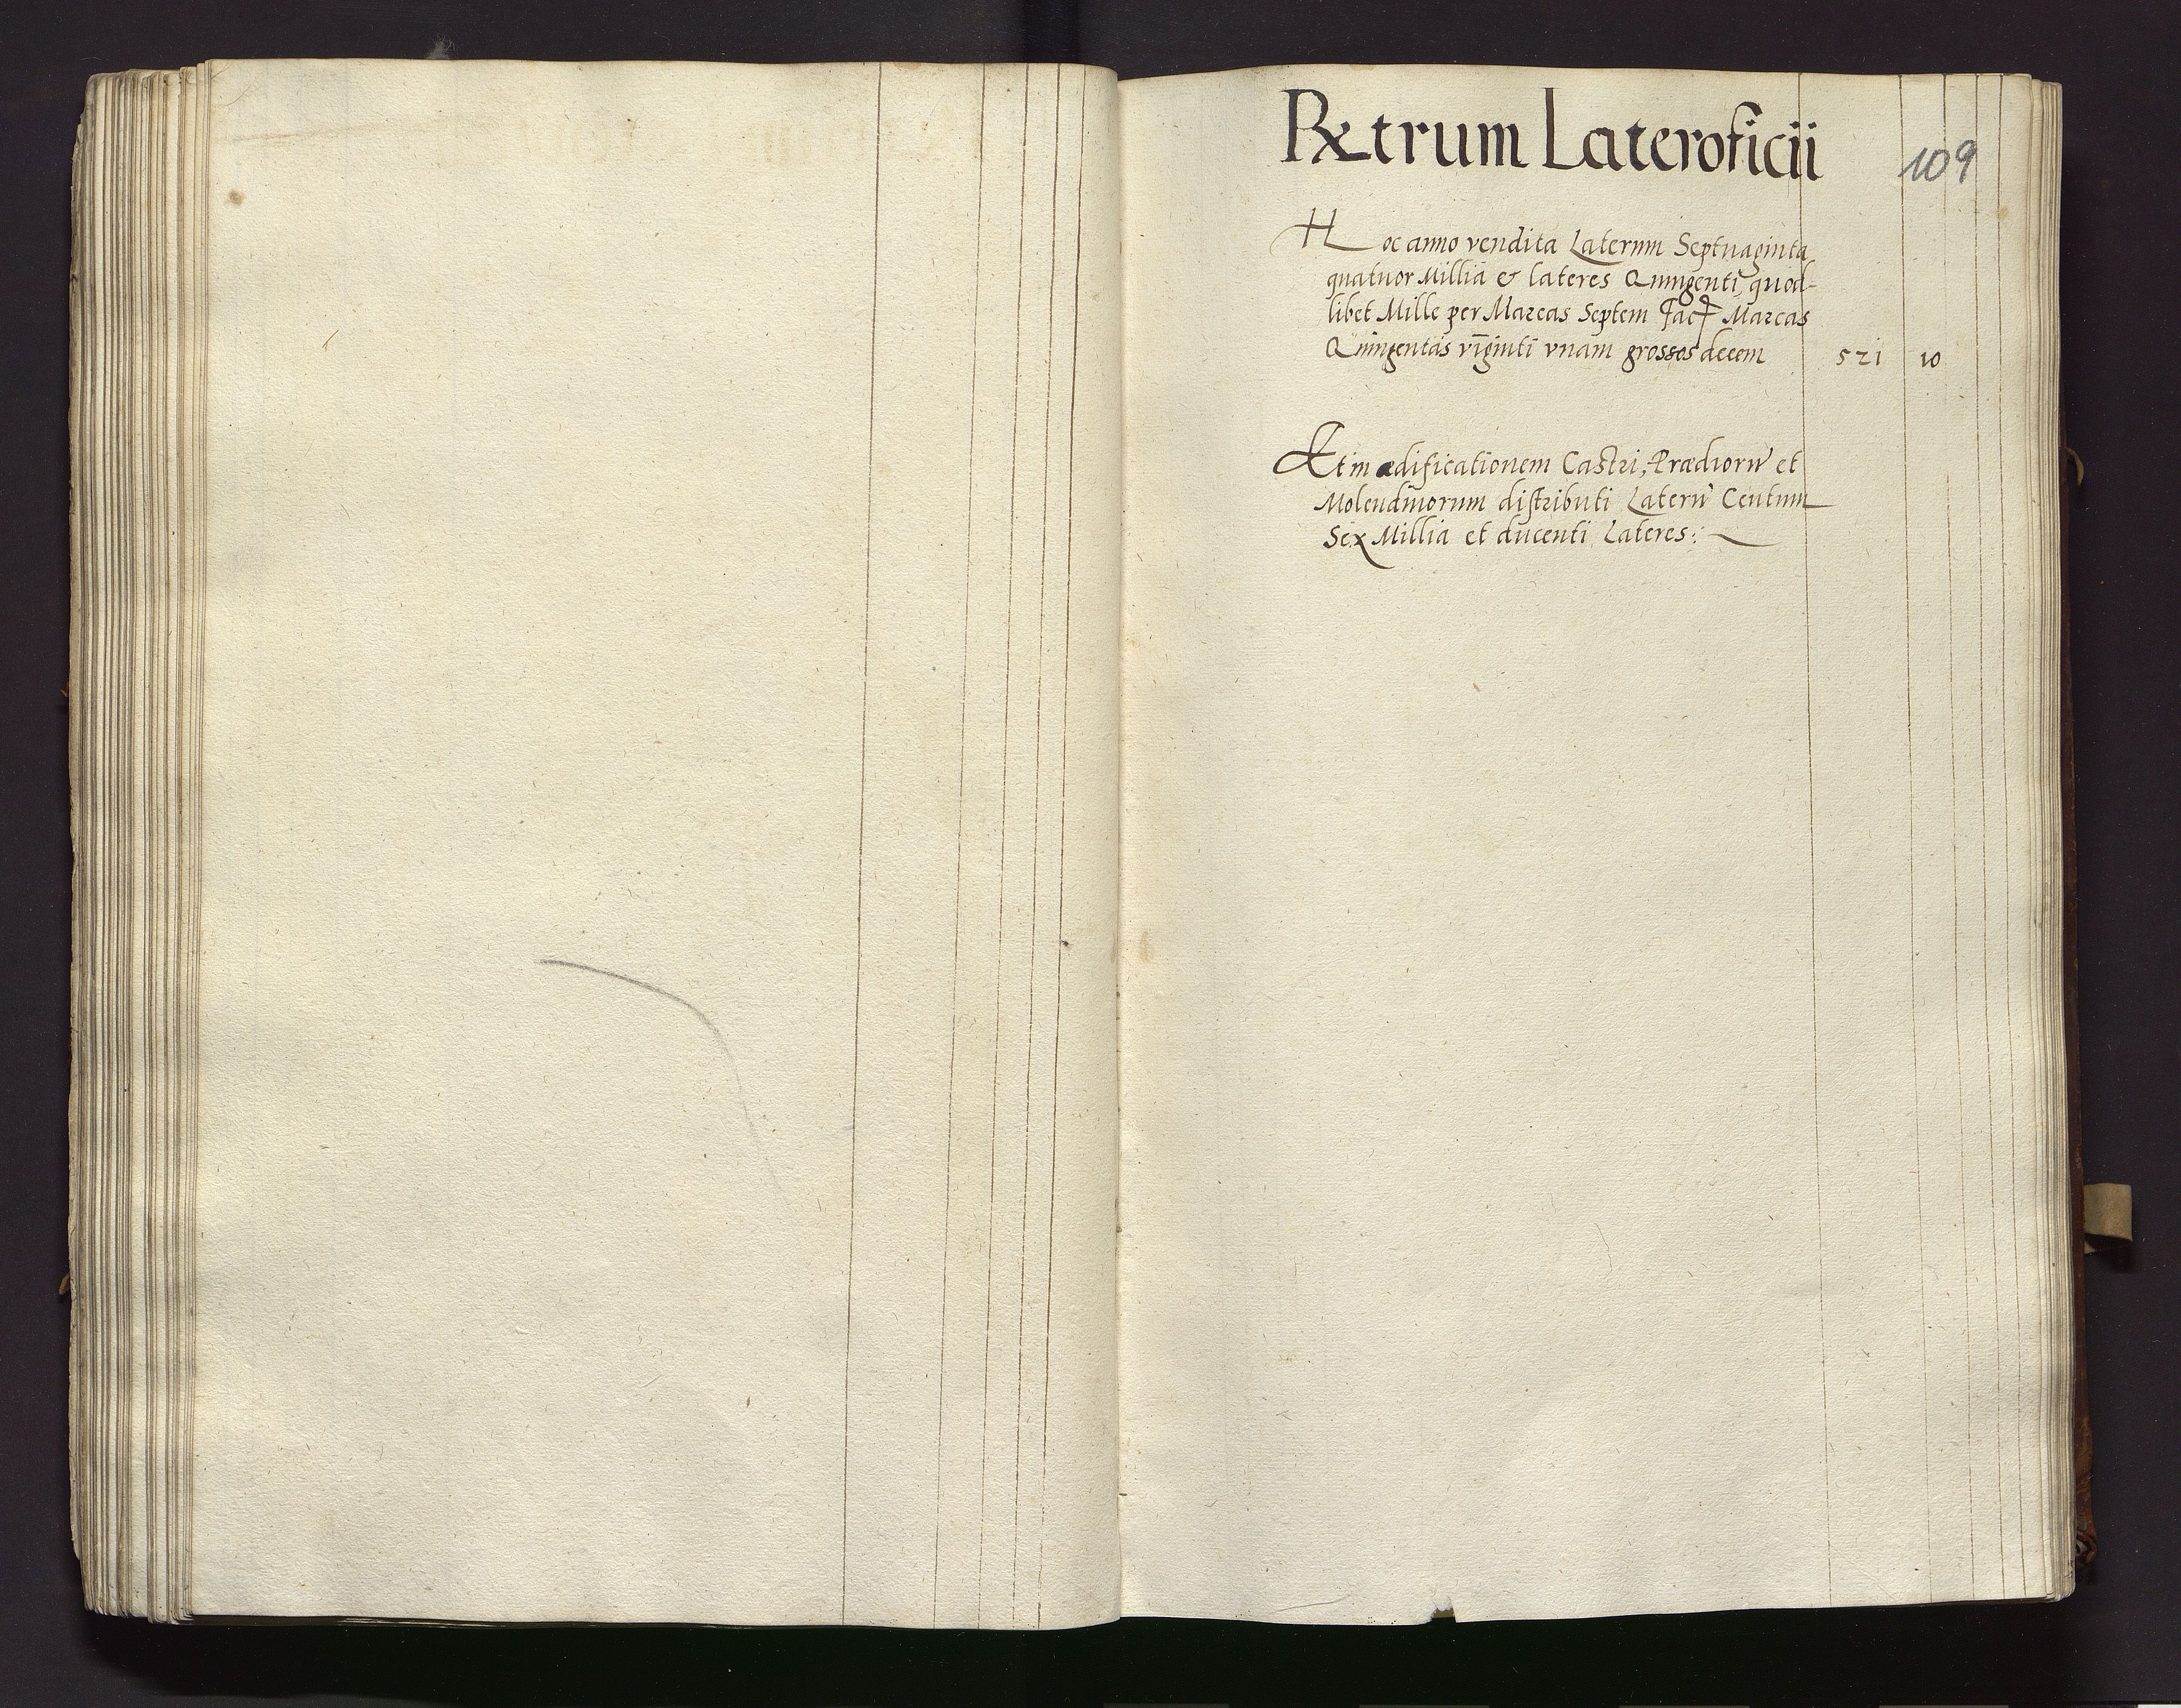 Rxtrum Lateroficii
109
Hoc anno vendita Laterum Septuaginta
quatuor Millia & lateres Quingenti quod-
libet Mille per Marcas Septem fact Marcas
Quingentas viginti vnam grossos decem 521 10
Et in ædificationem Castri, Prædiorũ et
Molendinorum distributi Laterũ Centum
Sex Millia et ducenti Lateres: